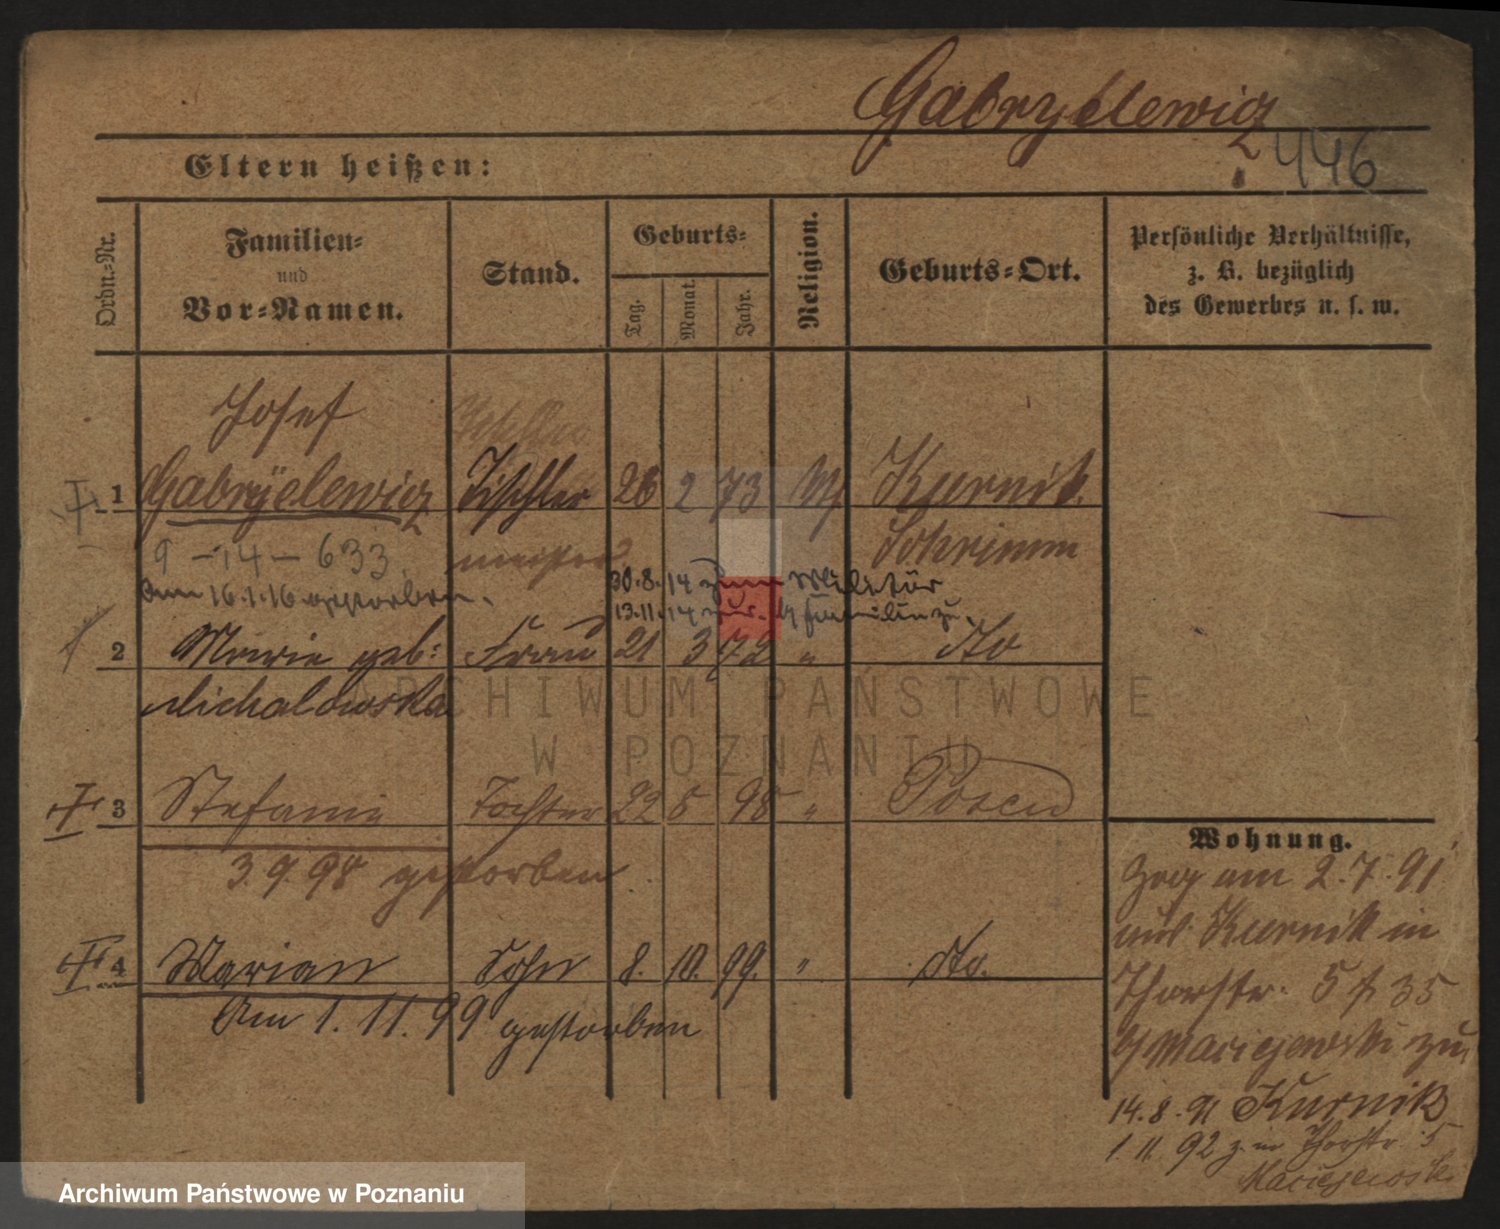 Gabryelewicz
446
Eltern heißen:
Ordn.=Nr.
Familien=
und
Vor=Namen.
Stand.
Geburts=
Tag.
Monat.
Jahr.
Religion.
Geburts=Ort.
Persönliche Verhältnisse,
z. B. bezüglich
des Gewerbes u. s. w.
Josef
1 Gabryelewicz Tischler 26 2 73 Kurnik
meister Schrimm
9 - 14 - 633
am 16.1.16 gestorben.
30.8.14 zum Militär
13.11.14 zur. Familie zu.
2 Marie geb: Frau 21 3 72 " do
Michalowska
3 Stefanie Tochter 22 5 98 " Posen
3.9.98 gestorben
4 Marian Sohn 8. 10. 99. " do.
Am 1.11.99 gestorben
Wohnung.
Zog am 2.7.91
aus Kurnik in
Thorstr. 5
Maciejewski
14.8.91 Kurnik
1 11 92 z. in Thorstr 5
Maciejewski
ARCHIWUM PAŃSTWOWE
W POZNANIU
Archiwum Państwowe w Poznaniu